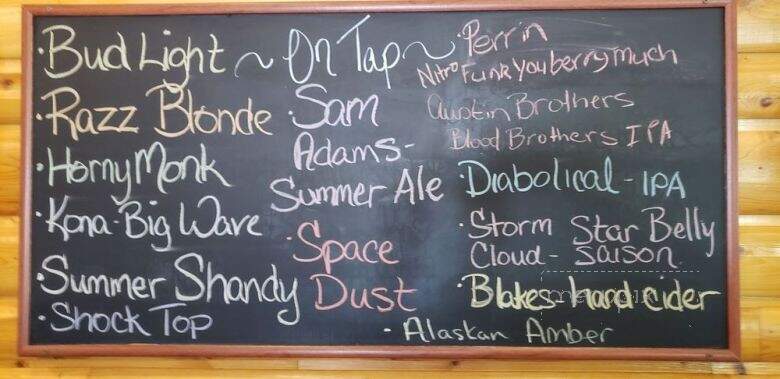 ~ On Tap ~
·Bud Light
·Razz Blonde
·Horny Monk
·Kona-Big Wave
·Summer Shandy
·Shock Top
·Sam
Adams-
Summer Ale
·Space
Dust
·Perrin
Nitro Funk you berry much
Austin Brothers
Blood Brothers IPA
·Diabolical - IPA
·Storm Star Belly
Cloud - Saison
·Blakes hard cider
·Alaskan Amber